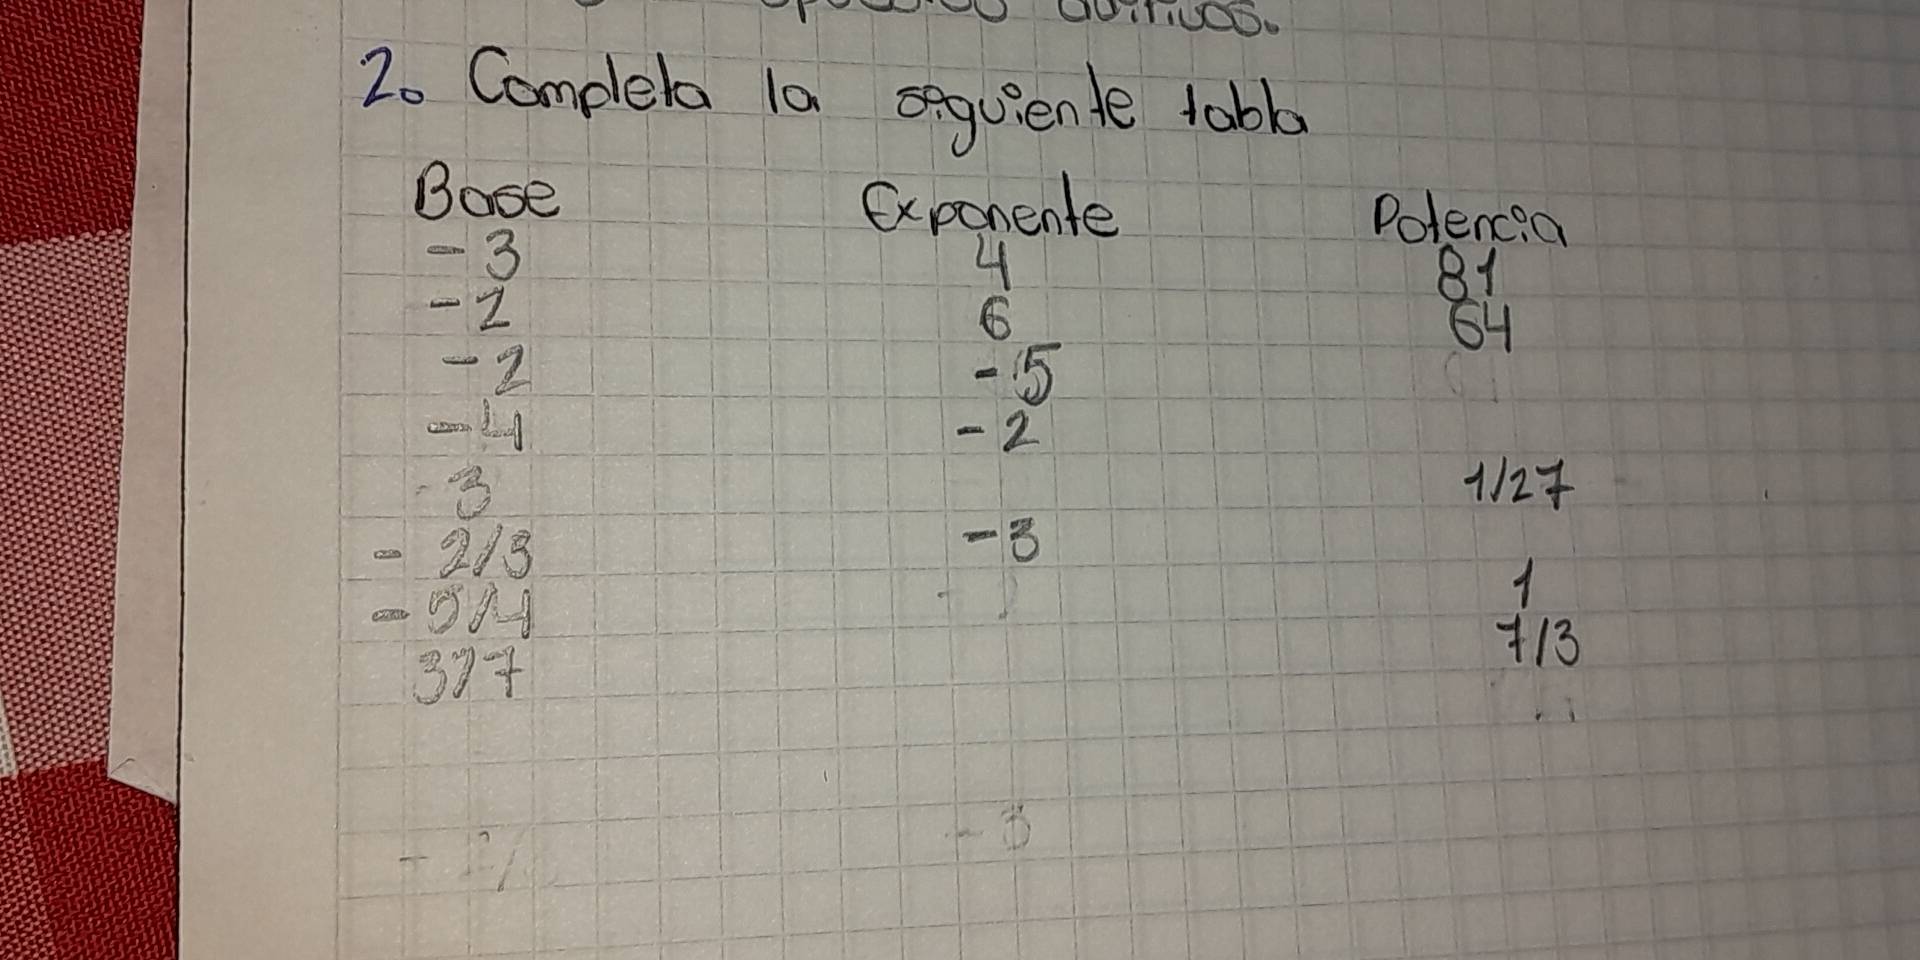 2. Completa la siguiente tabla
Base Exponente Potencia
-3 4 81
-2 6 64
-2 -5
-4 -2
3 1/27
-2/3 -3
-5/4 1
3/7 7/3
-3